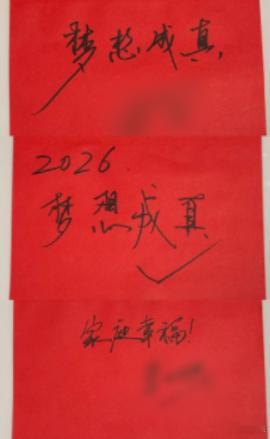 梦想成真
2026.
梦想成真
家庭幸福！